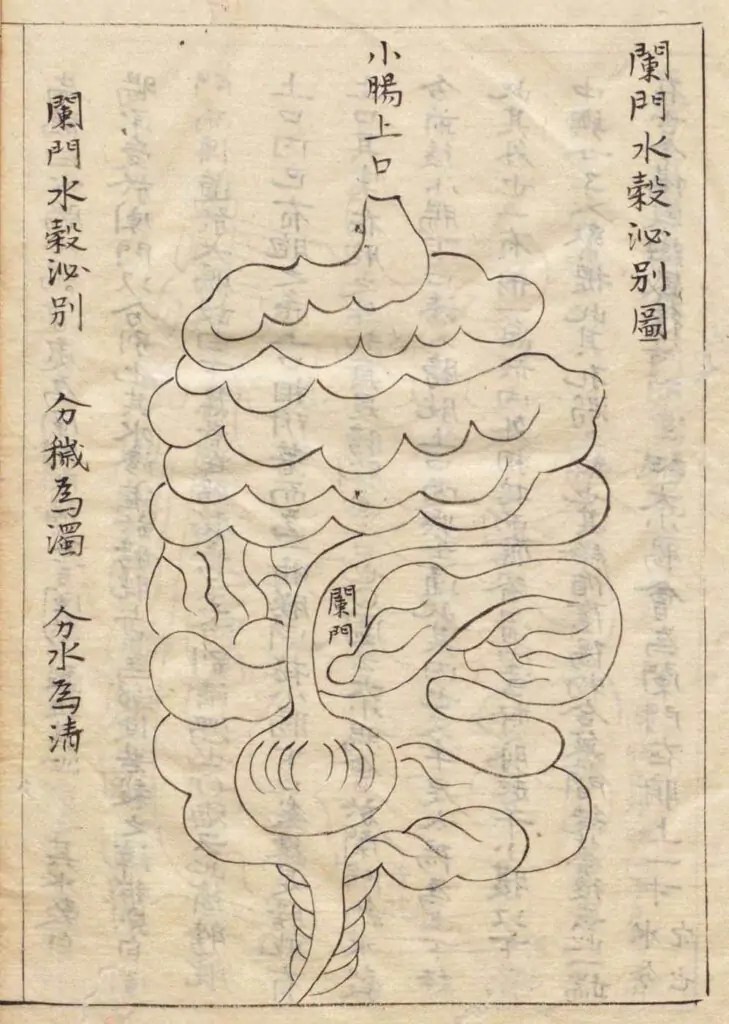 闌門水穀泌別圖
小腸上口
闌門
闌門水穀泌別 分穢為濁 分水為清